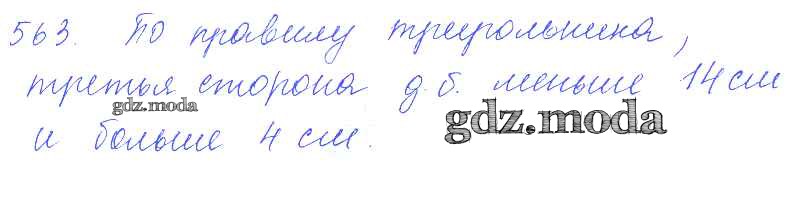 563. По правилу треугольника,
третья сторона д.б. меньше 14 см
gdz.moda
и больше 4 см.
gdz.moda